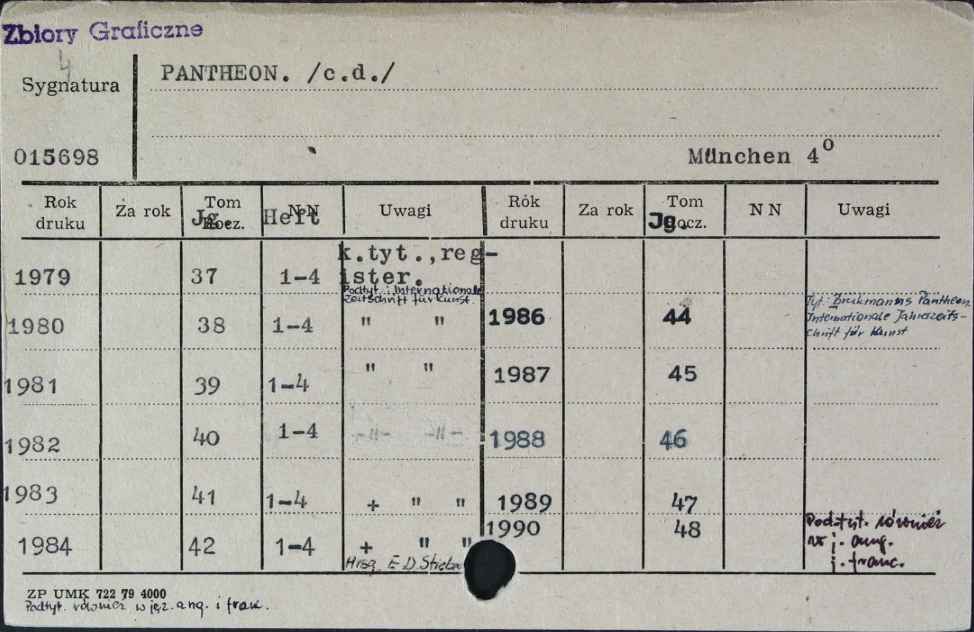 Zbiory Graficzne
4
Sygnatura PANTHEON. /c.d./
015698 München 4°
Rok druku Za rok Tom Rocz. Jg. NN Heft Uwagi Rok druku Za rok Tom Rocz. Jg. NN Uwagi
k.tyt.,reg-
1979 37 1-4 ister.
Podtyt.: Internationale
Zeitschrift für Kunst.
1980 38 1-4 " " 1986 44 Tyt. Bruckmanns Pantheon.
Internationale Jahreszeits-
chrift für Kunst
1981 39 1-4 " " 1987 45
1982 40 1-4 -"- -"- 1988 46
1983 41 1-4 + " " 1989 47
1984 42 1-4 + " " 1990 48 Podtyt. również
w j. ang.
j. franc.
Hrsg. E. D.
ZP UMK 722 79 4000
Podtyt. również w jęz. ang. i franc.